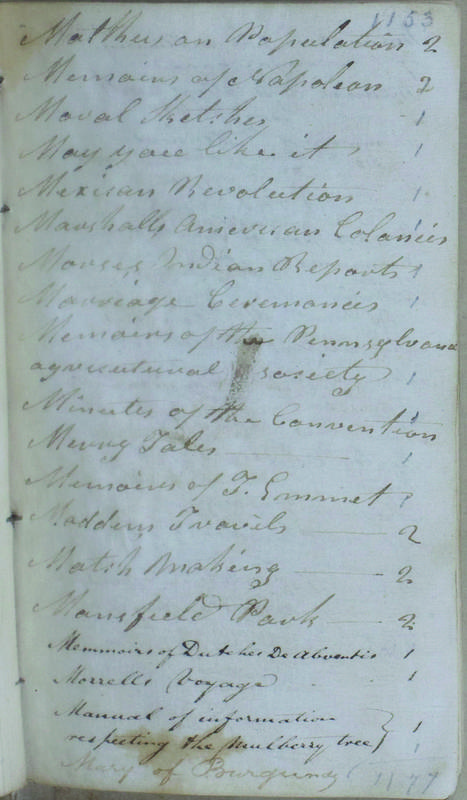 1153
Malthus on Population 2
Memoirs of Napoleon 2
Moral Sketches 1
May you like it 1
Mexican Revolution 1
Marshalls American Colonies 1
Morses Indian Reports 1
Marriage Ceremonies 1
Memoirs of the Pennsylvania
agricultural society 1
Minutes of the Convention 1
Merry Tales 1
Memoirs of T. Emmet 1
Maddens Travels 2
Match Making 2
Mansfield Park 2
Memmoirs of Dutches De Abrantis 1
Morrells Voyage 1
Manual of information
respecting the mulberry tree } 1
Mary of Burgundy 1
1177